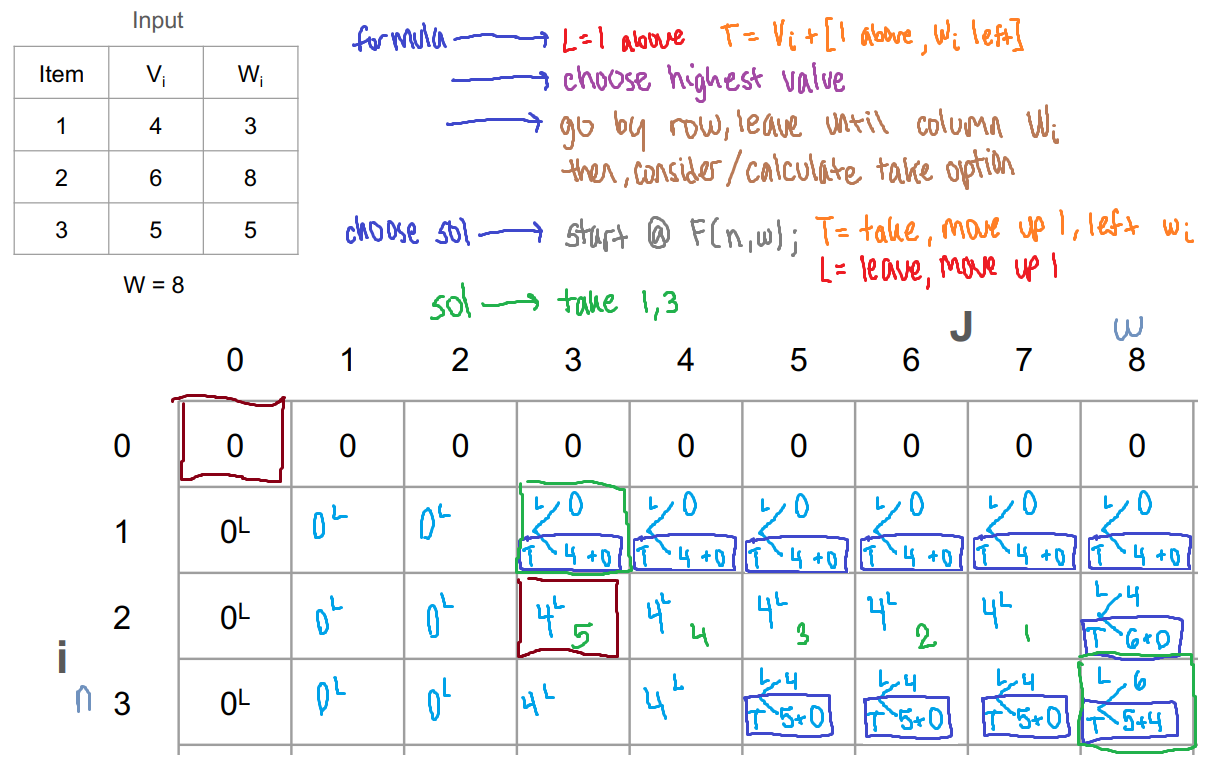 Input
Item Vi Wi
1 4 3
2 6 8
3 5 5
W = 8
formula → L=1 above T= Vi + [1 above, Wi left]
→ choose highest value
→ go by row, leave until column Wi
then, consider/calculate take option
choose sol → start @ F(n,w); T= take, move up 1, left wi
L= leave, move up 1
sol → take 1,3
J w
0 1 2 3 4 5 6 7 8
0 0 0 0 0 0 0 0 0 0
L 0 L 0 L 0 L 0 L 0 L 0
1 0L 0L 0L
T 4+0 T 4+0 T 4+0 T 4+0 T 4+0 T 4+0
L 4
2 0L 0L 0L 4L 5 4L 4 4L 3 4L 2 4L 1
T 6+0
i
L 4 L 4 L 4 L 6
n 3 0L 0L 0L 4L 4L
T 5+0 T 5+0 T 5+0 T 5+4